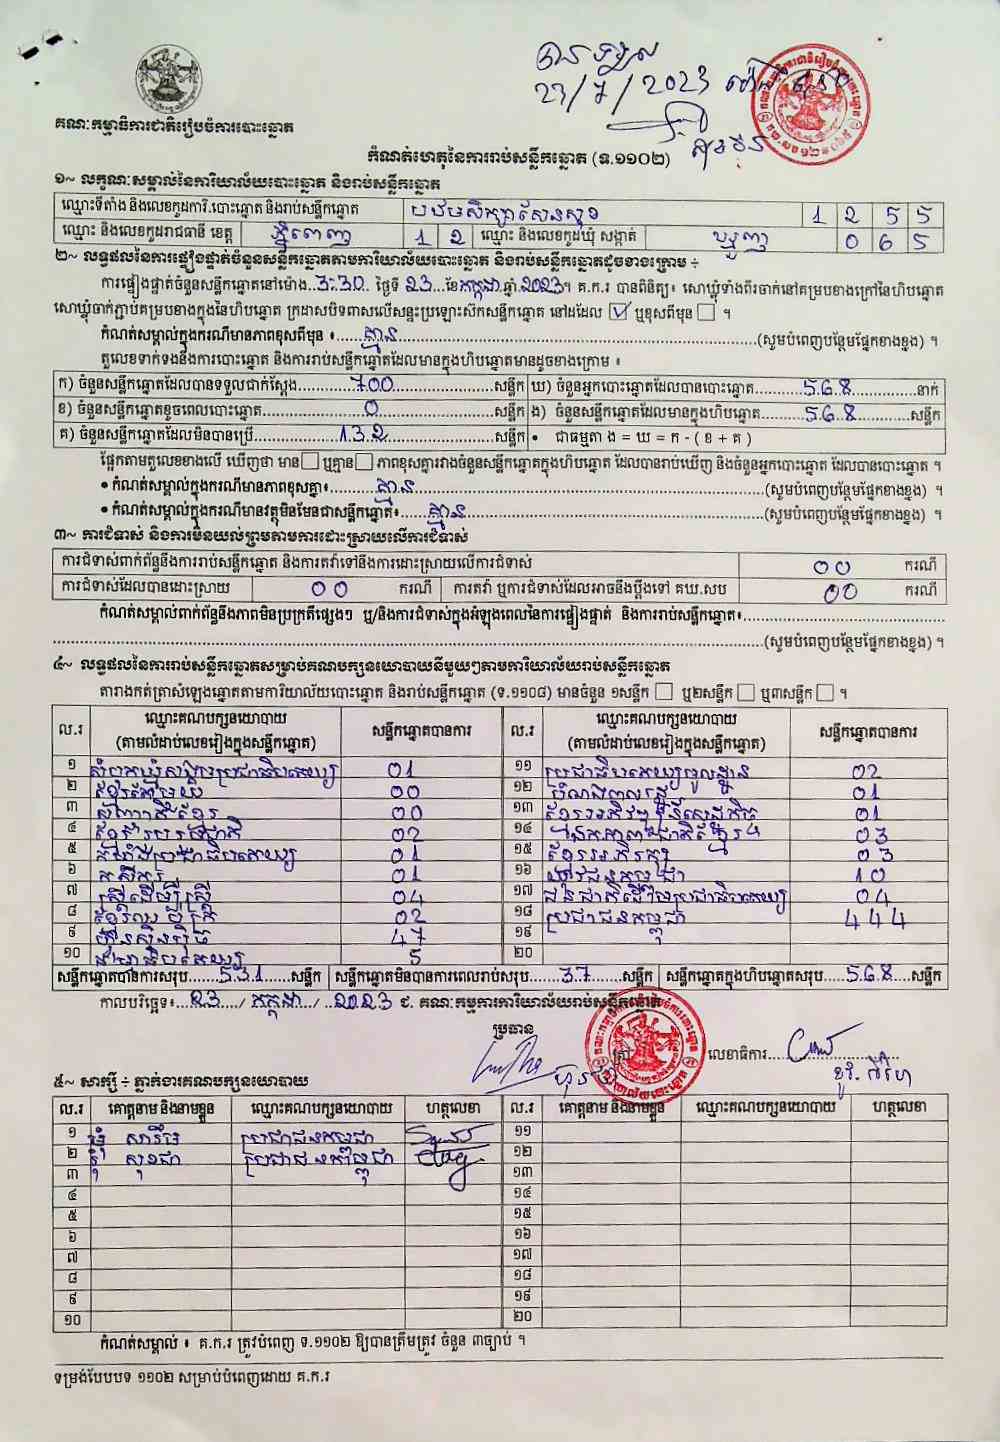 បានទទួល
23/7/2023
គណៈកម្មាធិការជាតិរៀបចំការបោះឆ្នោត
កំណត់ហេតុនៃការរាប់សន្លឹកឆ្នោត (ទ.១១០២)
១~ លក្ខណៈសម្គាល់នៃការិយាល័យបោះឆ្នោត និងរាប់សន្លឹកឆ្នោត
ឈ្មោះទីតាំង និងលេខកូដការិ.បោះឆ្នោត និងរាប់សន្លឹកឆ្នោត បឋមសិក្សាសែនសុខ 1 2 5 5
ឈ្មោះ និងលេខកូដរាជធានី ខេត្ត ភ្នំពេញ 1 2 ឈ្មោះ និងលេខកូដឃុំ សង្កាត់ 0 6 5
២~ លទ្ធផលនៃការផ្ទៀងផ្ទាត់ចំនួនសន្លឹកឆ្នោតតាមការិយាល័យបោះឆ្នោត និងរាប់សន្លឹកឆ្នោតដូចខាងក្រោម ÷
ការផ្ទៀងផ្ទាត់ចំនួនសន្លឹកឆ្នោតនៅម៉ោង..3:30.. ថ្ងៃទី 23...ខែកក្កដា.ឆ្នាំ.2023។ គ.ក.រ បានពិនិត្យ៖ សោឃ្លុំទាំងពីរចាក់នៅគម្របខាងក្រៅនៃហិបឆ្នោត
សោឃ្លុំចាក់ភ្ជាប់គម្របខាងក្នុងនៃហិបឆ្នោត ក្រដាសបិទពាសលើសន្ទះប្រឡោះស៊កសន្លឹកឆ្នោត នៅដដែល ☑ ឬខុសពីមុន ☐ ។
កំណត់សម្គាល់ក្នុងករណីមានភាពខុសពីមុន ៖ គ្មាន (សូមបំពេញបន្ថែមផ្នែកខាងខ្នង) ។
តួលេខទាក់ទងនឹងការបោះឆ្នោត និងការរាប់សន្លឹកឆ្នោតដែលមានក្នុងហិបឆ្នោតមានដូចខាងក្រោម ៖
ក) ចំនួនសន្លឹកឆ្នោតដែលបានទទួលជាក់ស្តែង.....700.....សន្លឹក ឃ) ចំនួនអ្នកបោះឆ្នោតដែលបានបោះឆ្នោត.....568.....នាក់
ខ) ចំនួនសន្លឹកឆ្នោតខូចពេលបោះឆ្នោត.....0.....សន្លឹក ង) ចំនួនសន្លឹកឆ្នោតដែលមានក្នុងហិបឆ្នោត.....568.....សន្លឹក
គ) ចំនួនសន្លឹកឆ្នោតដែលមិនបានប្រើ.....132.....សន្លឹក • ជាធម្មតា ង = ឃ = ក - ( ខ + គ )
ផ្អែកតាមតួលេខខាងលើ ឃើញថា មាន☐ ឬគ្មាន☐ ភាពខុសគ្នារវាងចំនួនសន្លឹកឆ្នោតក្នុងហិបឆ្នោត ដែលបានរាប់ឃើញ និងចំនួនអ្នកបោះឆ្នោត ដែលបានបោះឆ្នោត ។
• កំណត់សម្គាល់ក្នុងករណីមានភាពខុសគ្នា៖ គ្មាន (សូមបំពេញបន្ថែមផ្នែកខាងខ្នង) ។
• កំណត់សម្គាល់ក្នុងករណីមានវត្ថុមិនមែនជាសន្លឹកឆ្នោត៖ គ្មាន (សូមបំពេញបន្ថែមផ្នែកខាងខ្នង) ។
៣~ ការជំទាស់ និងការមិនយល់ព្រមតាមការដោះស្រាយលើការជំទាស់
ការជំទាស់ពាក់ព័ន្ធនឹងការរាប់សន្លឹកឆ្នោត និងការតវ៉ាទៅនឹងការដោះស្រាយលើការជំទាស់ 00 ករណី
ការជំទាស់ដែលបានដោះស្រាយ 00 ករណី ការតវ៉ា ឬការជំទាស់ដែលអាចនឹងប្តឹងទៅ គឃ.សប 00 ករណី
កំណត់សម្គាល់ពាក់ព័ន្ធនឹងភាពមិនប្រក្រតីផ្សេងៗ ឬ/និងការជំទាស់ក្នុងអំឡុងពេលនៃការផ្ទៀងផ្ទាត់ និងការរាប់សន្លឹកឆ្នោត៖
(សូមបំពេញបន្ថែមផ្នែកខាងខ្នង) ។
៤~ លទ្ធផលនៃការរាប់សន្លឹកឆ្នោតសម្រាប់គណបក្សនយោបាយនីមួយៗតាមការិយាល័យរាប់សន្លឹកឆ្នោត
តារាងកត់ត្រាសំឡេងឆ្នោតតាមការិយាល័យបោះឆ្នោត និងរាប់សន្លឹកឆ្នោត (ទ.១១០៨) មានចំនួន ១សន្លឹក ☐ ឬ២សន្លឹក ☐ ឬ៣សន្លឹក ☐ ។
ល.រ ឈ្មោះគណបក្សនយោបាយ (តាមលំដាប់លេខរៀងក្នុងសន្លឹកឆ្នោត) សន្លឹកឆ្នោតបានការ ល.រ ឈ្មោះគណបក្សនយោបាយ (តាមលំដាប់លេខរៀងក្នុងសន្លឹកឆ្នោត) សន្លឹកឆ្នោតបានការ
១ សំបុកឃ្មុំសង្គមប្រជាធិបតេយ្យ 01 ១១ ប្រជាធិបតេយ្យមូលដ្ឋាន 02
២ ខ្មែរតែមួយ 00 ១២ បំណងពលរដ្ឋ 01
៣ សញ្ជាតិខ្មែរ 00 ១៣ ខ្មែរអភិវឌ្ឍន៍សេដ្ឋកិច្ច 01
៤ ខ្មែររួបរួមជាតិ 02 ១៤ ឯកភាពជាតិខ្មែរ 03
៥ កម្លាំងប្រជាធិបតេយ្យ 01 ១៥ ខ្មែរអភិរក្ស 03
៦ កសិករ 01 ១៦ 10
៧ ស្ត្រីដើម្បីស្ត្រី 04 ១៧ ជនជាតិដើមប្រជាធិបតេយ្យ 04
៨ ខ្មែរឈប់ក្រ 02 ១៨ ប្រជាជនកម្ពុជា 444
៩ ហ៊្វុនស៊ិនប៉ិច 47 ១៩
១០ ធម្មាធិបតេយ្យ 5 ២០
សន្លឹកឆ្នោតបានការសរុប.....531.....សន្លឹក សន្លឹកឆ្នោតមិនបានការពេលរាប់សរុប.....37.....សន្លឹក សន្លឹកឆ្នោតក្នុងហិបឆ្នោតសរុប.....568.....សន្លឹក
កាលបរិច្ឆេទ៖ 23 / កក្កដា / 2023 ជ. គណៈកម្មការការិយាល័យរាប់សន្លឹកឆ្នោត
ប្រធាន ត្រា លេខាធិការ
៥~ សាក្សី ÷ ភ្នាក់ងារគណបក្សនយោបាយ
ល.រ គោត្តនាម និងនាមខ្លួន ឈ្មោះគណបក្សនយោបាយ ហត្ថលេខា ល.រ គោត្តនាម និងនាមខ្លួន ឈ្មោះគណបក្សនយោបាយ ហត្ថលេខា
១ ប្រជាជនកម្ពុជា ១១
២ សុខជា ប្រជាជនកម្ពុជា ១២
៣ ១៣
៤ ១៤
៥ ១៥
៦ ១៦
៧ ១៧
៨ ១៨
៩ ១៩
១០ ២០
កំណត់សម្គាល់ ៖ គ.ក.រ ត្រូវបំពេញ ទ.១១០២ ឱ្យបានត្រឹមត្រូវ ចំនួន ៣ច្បាប់ ។
ទម្រង់បែបបទ ១១០២ សម្រាប់បំពេញដោយ គ.ក.រ